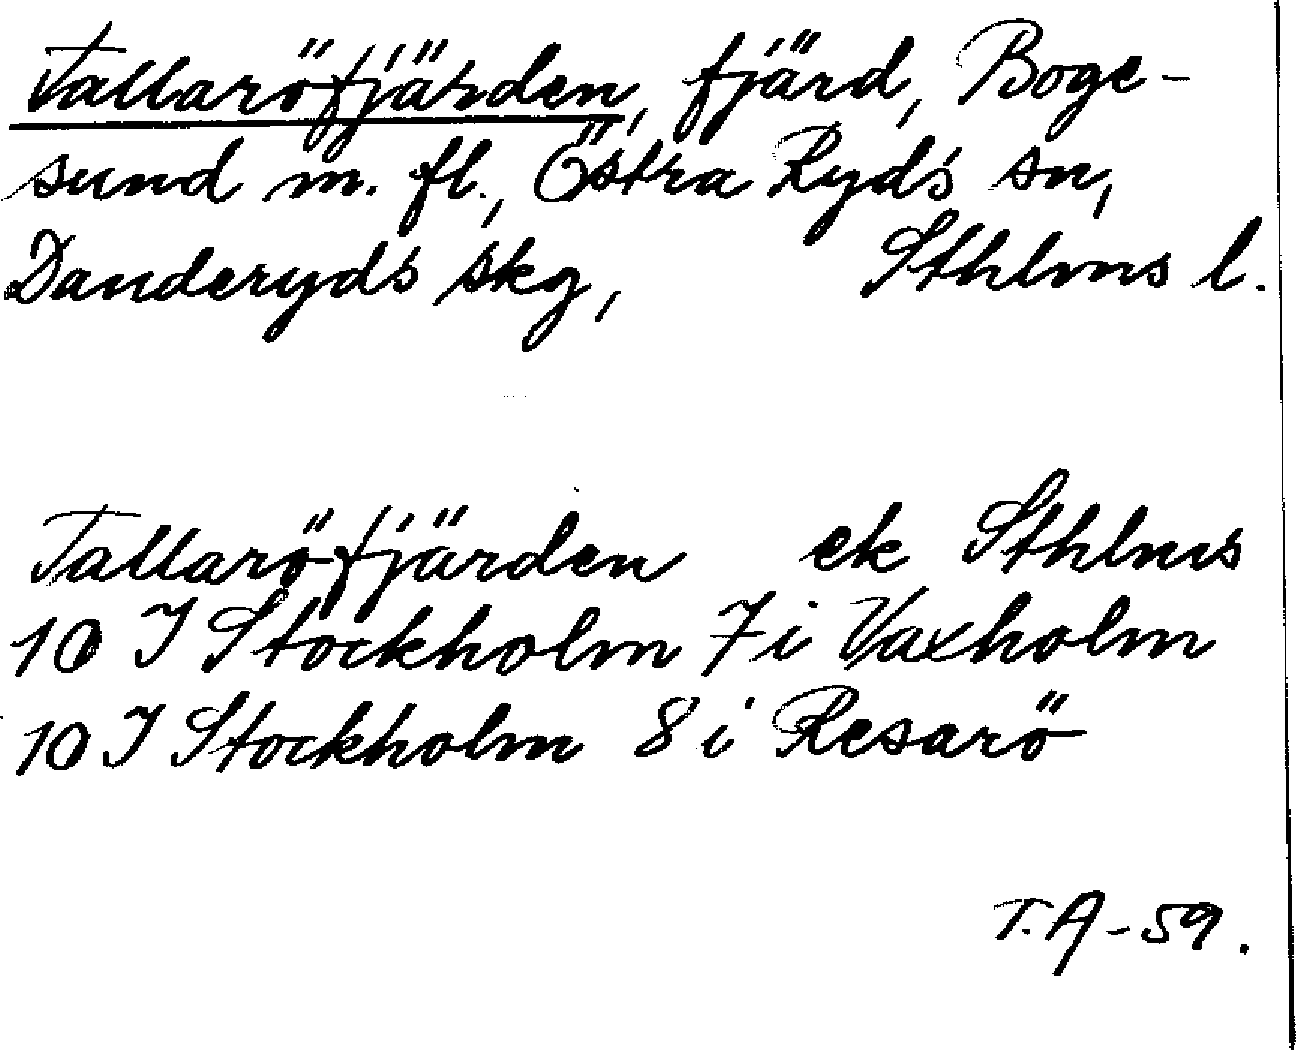 Tallaröfjärden, fjärd, Boge-
sund m. fl., Östra Ryds sn,
Danderyds skg, Sthlms l.
Tallaröfjärden ek Sthlms
10 I Stockholm 7 i Vaxholm
10 I Stockholm 8 i Resarö
T.A-59.